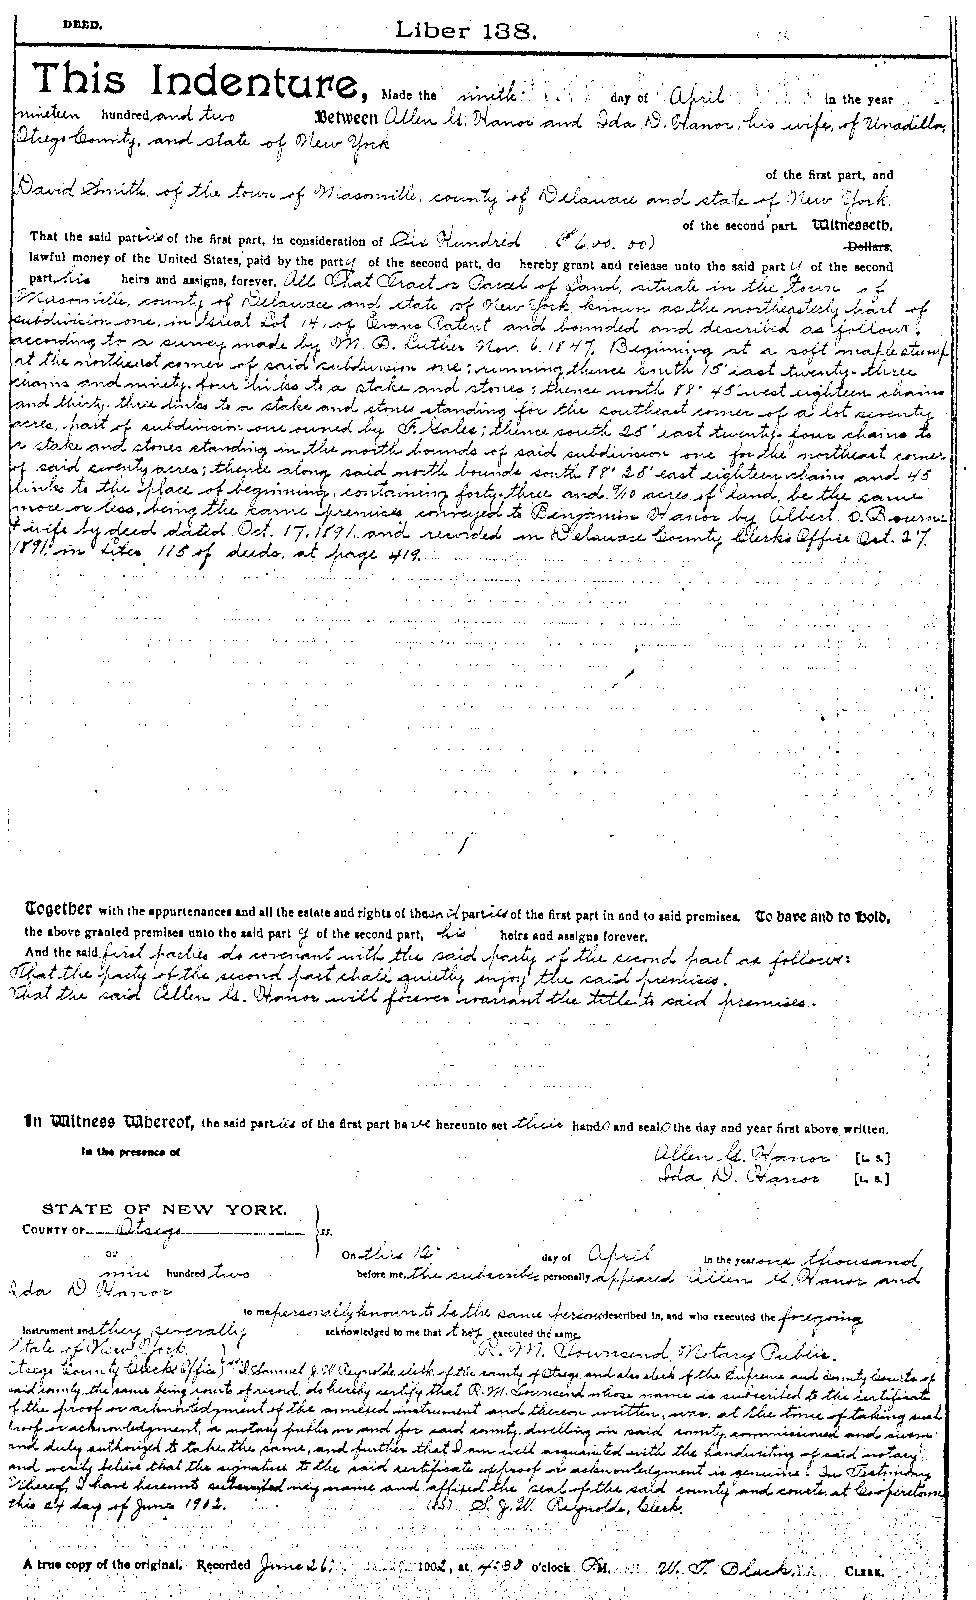 DEED.
Liber 138.
This Indenture, Made the ninth day of April in the year
nineteen hundred and two Between Allen G. Hanor and Ida D. Hanor, his wife, of Unadilla,
Otsego County, and state of New York
of the first part, and
David Smith, of the town of Masonville, county of Delaware and state of New York.
of the second part. Witnesseth,
That the said parties of the first part, in consideration of Six Hundred ($600.00) Dollars,
lawful money of the United States, paid by the party of the second part, do hereby grant and release unto the said party of the second
part, his heirs and assigns, forever, All That Tract or Parcel of Land, situate in the town of
Masonville, county of Delaware and state of New York, known as the northeasterly part of
subdivision one, in Great Lot 14, of Evans Patent and bounded and described as follows,
according to a survey made by M. B. Luther Nov. 6, 1847. Beginning at a soft maple stump
at the northeast corner of said subdivision one; running thence south 15' east twenty-three
chains and ninety-four links to a stake and stones; thence north 88° 45' west eighteen chains
and thirty-three links to a stake and stones standing for the southeast corner of a lot seventy
acres, part of subdivision one owned by F. Gales; thence south 25' east twenty-four chains to
a stake and stones standing in the north bounds of said subdivision one for the northeast corner
of said seventy acres; thence along said north bounds south 88° 25' east eighteen chains and 45
links to the place of beginning, containing forty-three and /10 acres of land, be the same
more or less, being the same premises conveyed to Benjamin Hanor by Albert O. Bourne
& wife by deed dated Oct. 17, 1891, and recorded in Delaware County Clerk's Office Oct. 27,
1891 in Liber 115 of deeds, at page 419.
Together with the appurtenances and all the estate and rights of the said parties of the first part in and to said premises. To have and to hold,
the above granted premises unto the said party of the second part, his heirs and assigns forever.
And the said first parties do covenant with the said party of the second part as follows:
That the party of the second part shall quietly enjoy the said premises.
That the said Allen G. Hanor will forever warrant the title to said premises.
In Witness Whereof, the said parties of the first part have hereunto set their hands and seals the day and year first above written.
In the presence of
Allen G. Hanor [L. S.]
Ida D. Hanor [L. S.]
STATE OF NEW YORK.
COUNTY OF Otsego ss.
On this 12 day of April in the year one thousand
nine hundred two before me, the subscriber personally appeared Allen G. Hanor and
Ida D Hanor
to me personally known to be the same persons described in, and who executed the foregoing
instrument and they severally acknowledged to me that they executed the same.
State of New York R. M. Townsend, Notary Public.
Otsego County Clerk's Office ss I Samuel J. W. Reynolds clerk of the county of Otsego and also clerk of the Supreme and County Courts of
said county, the same being courts of record, do hereby certify that R. M. Townsend whose name is subscribed to the certificate
of the proof or acknowledgment of the annexed instrument and thereon written, was, at the time of taking such
proof or acknowledgment, a notary public in and for said county, dwelling in said county, commissioned and sworn
and duly authorized to take the same, and further that I am well acquainted with the handwriting of said notary
and verily believe that the signature to the said certificate of proof or acknowledgment is genuine. In Testimony
Whereof, I have hereunto subscribed my name and affixed the seal of the said county and courts, at Cooperstown
this 24 day of June 1902. S. J. W. Reynolds, Clerk.
A true copy of the original. Recorded June 26, 1902, at 4:30 o'clock P.M. W. T. Black, CLERK.